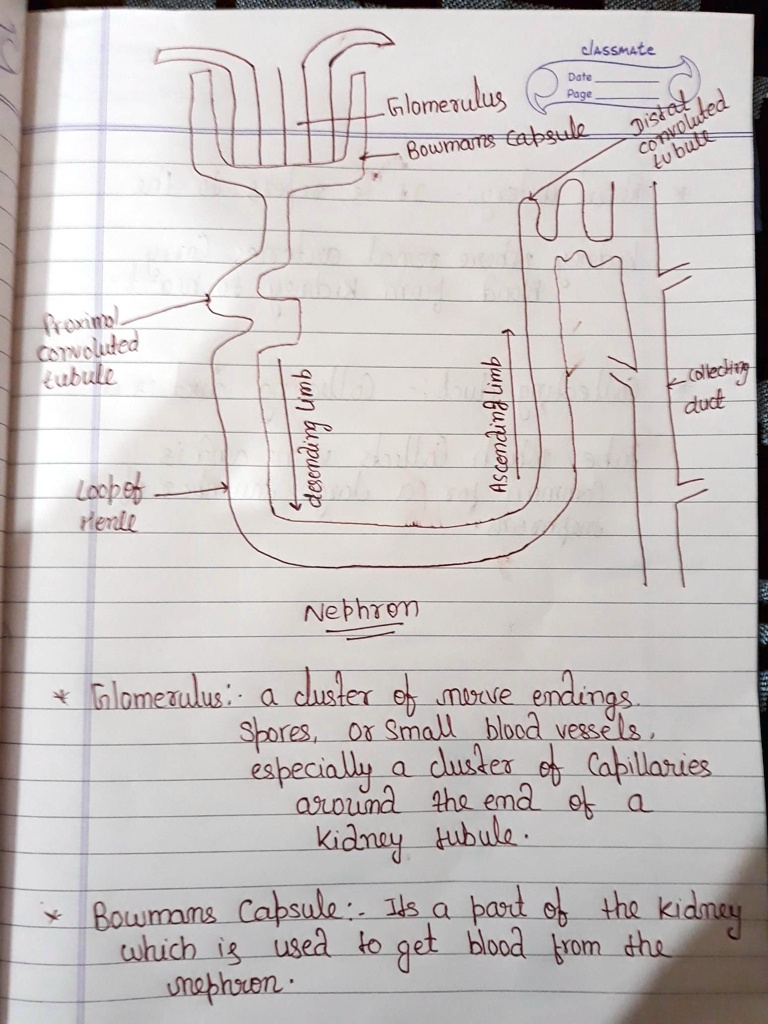 classmate
Date
Page
Glomerulus
Bowmans Capsule
Distal
convoluted
tubule
Proximal
convoluted
tubule
desending limb
Ascending limb
collecting
duct
Loop of
Henle
Nephron
* Glomerulus:- a cluster of nerve endings.
spores, or small blood vessels,
especially a cluster of Capillaries
around the end of a
kidney tubule.
* Bowmans Capsule:- Its a part of the kidney
which is used to get blood from the
nephron.